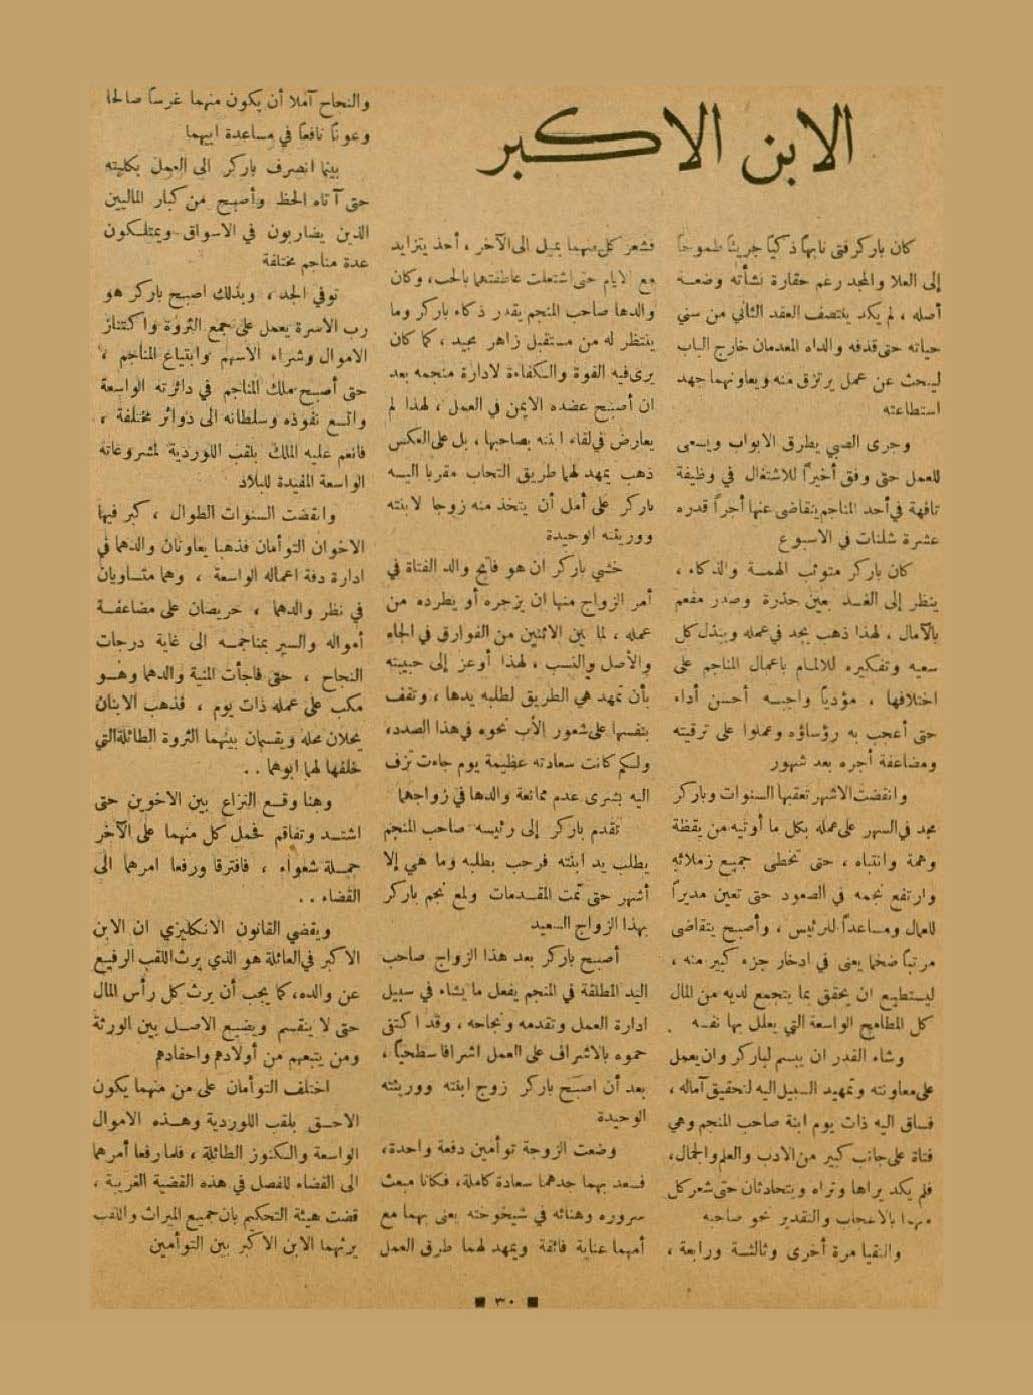 الابن الاكبر
كان باركر فتى نابهاً ذكياً جريئاً طموحاً
إلى العلا والمجد رغم حقارة نشأته وضعة
أصله ، لم يكد ينتصف العقد الثاني من سني
حياته حتى قذفه والداه المعدمان خارج الباب
ليبحث عن عمل يرتزق منه ويعاونهما جهد
استطاعته
وجرى الصبي يطرق الابواب ويسعى
للعمل حتى وفق أخيراً للاشتغال في وظيفة
تافهة في أحد المناجم يتقاضى عنها أجراً قدره
عشرة شلنات في الاسبوع
كان باركر متوثب الهمة والذكاء ،
ينظر إلى الغد بعين حذرة وصدر مفعم
بالآمال ، لهذا ذهب يجد في عمله ويبذل كل
سعيه وتفكيره للالمام باعمال المناجم على
اختلافها ، مؤدياً واجبه أحسن أداء
حتى أعجب به رؤساؤه وعملوا على ترقيته
ومضاعفة أجره بعد شهور
وانقضت الاشهر تعقبها السنوات وباركر
مجد في السهر على عمله بكل ما أوتيه من يقظة
وهمة وانتباه ، حتى تخطى جميع زملائه
وارتفع نجمه في الصعود حتى تعين مديراً
للعمال ومساعداً للرئيس ، وأصبح يتقاضى
مرتباً ضخما يعنى في ادخار جزء كبير منه ،
ليستطيع ان يحقق بما يتجمع لديه من المال
كل المطامح الواسعة التي يعلل بها نفسه .
وشاء القدر ان يبسم لباركر وان يعمل
على معاونته وتمهيد السبيل اليه لتحقيق آماله ،
فساق اليه ذات يوم ابنة صاحب المنجم وهي
فتاة على جانب كبير من الادب والعلم والجمال ،
فلم يكد يراها وتراه ويتحادثان حتى شعر كل
منهما بالاعجاب والتقدير نحو صاحبه
والتقيا مرة أخرى وثالثة ورابعة ،
فشعر كل منهما بميل الى الآخر ، أخذ يتزايد
مع الايام حتى اشتعلت عاطفتهما بالحب ، وكان
والدها صاحب المنجم يقدر ذكاء باركر وما
ينتظر له من مستقبل زاهر مجيد ، كما كان
يرى فيه القوة والكفاءة لادارة منجمه بعد
ان أصبح عضده الايمن في العمل ، لهذا لم
يعارض في لقاء ابنته بصاحبها ، بل على العكس
ذهب يمهد لهما طريق التحاب مقربا اليه
باركر على أمل أن يتخذ منه زوجا لابنته
ووريثته الوحيدة
خشي باركر ان هو فاتح والد الفتاة في
أمر الزواج منها ان يزجره أو يطرده من
عمله ، لما بين الاثنين من الفوارق في الجاه
والأصل والنسب ، لهذا أوعز إلى حبيبته
بأن تمهد هي الطريق لطلبه يدها ، وتقف
بنفسها على شعور الأب نحوه في هذا الصدد ،
ولكم كانت سعادته عظيمة يوم جاءت تزف
اليه بشرى عدم ممانعة والدها في زواجهما
تقدم باركر إلى رئيسه صاحب المنجم
يطلب يد ابنته فرحب بطلبه وما هي إلا
أشهر حتى تمت المقدمات ولمع نجم باركر
بهذا الزواج السعيد
أصبح باركر بعد هذا الزواج صاحب
اليد المطلقة في المنجم يفعل ما يشاء في سبيل
ادارة العمل وتقدمه ونجاحه ، وقد اكتفى
حموه بالاشراف على العمل اشرافا سطحياً ،
بعد أن اصبح باركر زوج ابنته ووريثته
الوحيدة
وضعت الزوجة توأمين دفعة واحدة ،
فسعد بهما جدهما سعادة كاملة ، فكانا مبعث
سروره وهنائه في شيخوخته يعنى بهما مع
أمهما عناية فائقة ويمهد لهما طرق العمل
والنجاح آملا أن يكون منهما غرساً صالحا
وعوناً نافعاً في مساعدة ابيهما
بينما انصرف باركر الى العمل بكليته
حتى آتاه الحظ وأصبح من كبار الماليين
الذين يضاربون في الاسواق ويمتلكون
عدة مناجم مختلفة
توفي الجد ، وبذلك اصبح باركر هو
رب الاسرة يعمل على جمع الثروة واكتناز
الاموال وشراء الاسهم وابتياع المناجم ،
حتى أصبح ملك المناجم في دائرته الواسعة
واتسع نفوذه وسلطانه الى دوائر مختلفة ،
فانعم عليه الملك بلقب اللوردية لمشروعاته
الواسعة المفيدة للبلاد
وانقضت السنوات الطوال ، كبر فيها
الاخوان التوأمان فذهبا يعاونان والدهما في
ادارة دفة اعماله الواسعة ، وهما متساويان
في نظر والدهما ، حريصان على مضاعفة
أمواله والسير بمناجمه الى غاية درجات
النجاح ، حتى فاجأت المنية والدهما وهو
مكب على عمله ذات يوم ، فذهب الابنان
يحلان محله ويقسمان بينهما الثروة الطائلة التي
خلفها لهما ابوهما . .
وهنا وقع النزاع بين الاخوين حتى
اشتد وتفاقم فحمل كل منهما على الآخر
حملة شعواء ، فافترقا ورفعا امرهما الى
القضاء . .
ويقضي القانون الانكليزي ان الابن
الاكبر في العائلة هو الذي يرث اللقب الرفيع
عن والده ، كما يجب أن يرث كل رأس المال
حتى لا ينقسم ويضيع الاصل بين الورثة
ومن يتبعهم من أولادهم واحفادهم
اختلف التوأمان على من منهما يكون
الاحق بلقب اللوردية وهذه الاموال
الواسعة والكنوز الطائلة ، فلما رفعا أمرهما
الى القضاء للفصل في هذه القضية الغريبة ،
قضت هيئة التحكيم بان جميع الميراث واللقب
يرثهما الابن الاكبر بين التوأمين
٣٠